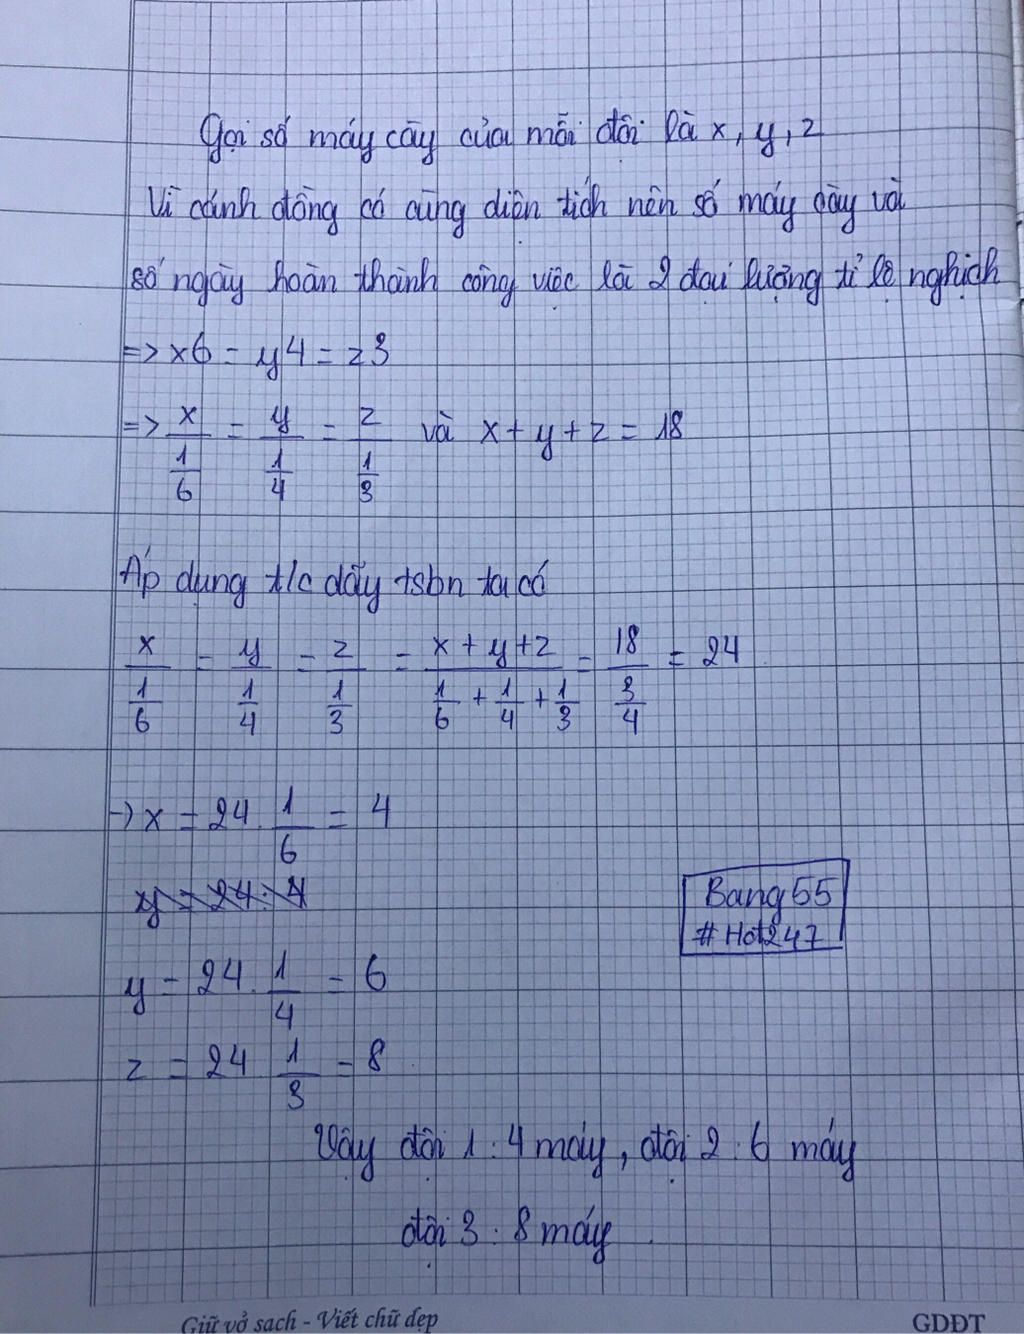 Gọi số máy cày của mỗi đội là x, y, z
Vì cánh đồng có cùng diện tích nên số máy cày và
số ngày hoàn thành công việc là 2 đại lượng tỉ lệ nghịch
=> x6 = y4 = z3
=> x/(1/6) = y/(1/4) = z/(1/3) và x + y + z = 18
Áp dụng t/c dãy tsbn ta có
x/(1/6) = y/(1/4) = z/(1/3) = (x + y + z)/(1/6 + 1/4 + 1/3) = 18/(3/4) = 24
-> x = 24 . 1/6 = 4
y = 24 : 4
Bang55
# Hot247
y = 24 . 1/4 = 6
z = 24 1/3 = 8
Vậy đội 1 : 4 máy, đội 2 : 6 máy
đội 3 : 8 máy.
Giữ vở sạch - Viết chữ đẹp
GDĐT